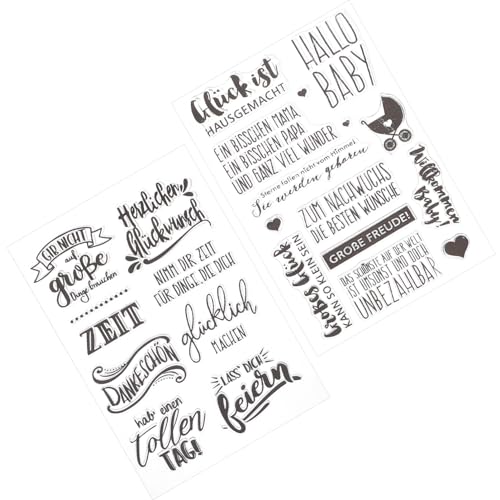 GIB NICHT
auf
große
Dinge brauchen
ZEIT
DANKESCHÖN
hab einen
tollen
TAG!
Herzlichen
Glückwunsch
NIMM DIR ZEIT
FÜR DINGE, DIE DICH
glücklich
MACHEN
LASS' DICH
feiern
Glück ist
HAUSGEMACHT
EIN BISSCHEN MAMA,
EIN BISSCHEN PAPA
UND GANZ VIEL WUNDER
Sterne fallen nicht vom Himmel
Sie werden geboren
ZUM NACHWUCHS
DIE BESTEN WÜNSCHE
GROßE FREUDE!
DAS SCHÖNSTE AUF DER WELT
IST UMSONST UND DOCH
UNBEZAHLBAR
Großes Glück
KANN SO KLEIN SEIN
HALLO
BABY
Willkommen
Baby!